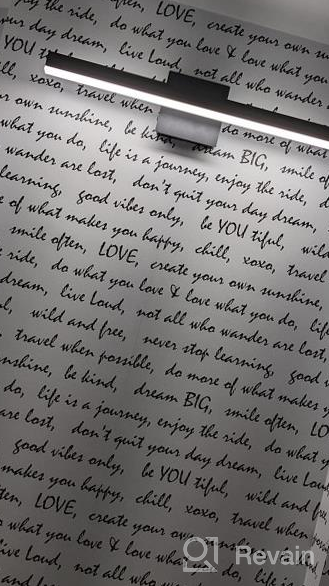 the ride, do what you love & love what you
smile often, LOVE, create your own su
your day dream, live Loud, not all who wander
YOU
ll, xoxo, travel when do more of what
r own sunshine, be kind, dream BIG, smile of
what you do, life is a journey, enjoy the ride, d
wander are lost, don't quit your day dream,
learning, good vibes only, be YOU tiful, wild
e of what makes you happy, chill, xoxo, travel
smile often, LOVE, create your own sunshine,
e ride, do what you love & love what you do, life
dream, live Loud, not all who wander are lost,
l, wild and free, never stop learning, good
travel when possible, do more of what makes y
nshine, be kind, dream BIG, smile often, LO
do, life is a journey, enjoy the ride, do what y
are lost, don't quit your day dream, live Loud
good vibes only, be YOU tiful, wild and fre
makes you happy, chill, xoxo, travel when
ten, LOVE, create your own sunshine
o what you love & love what you do,
live Loud, not all who wander
Revain